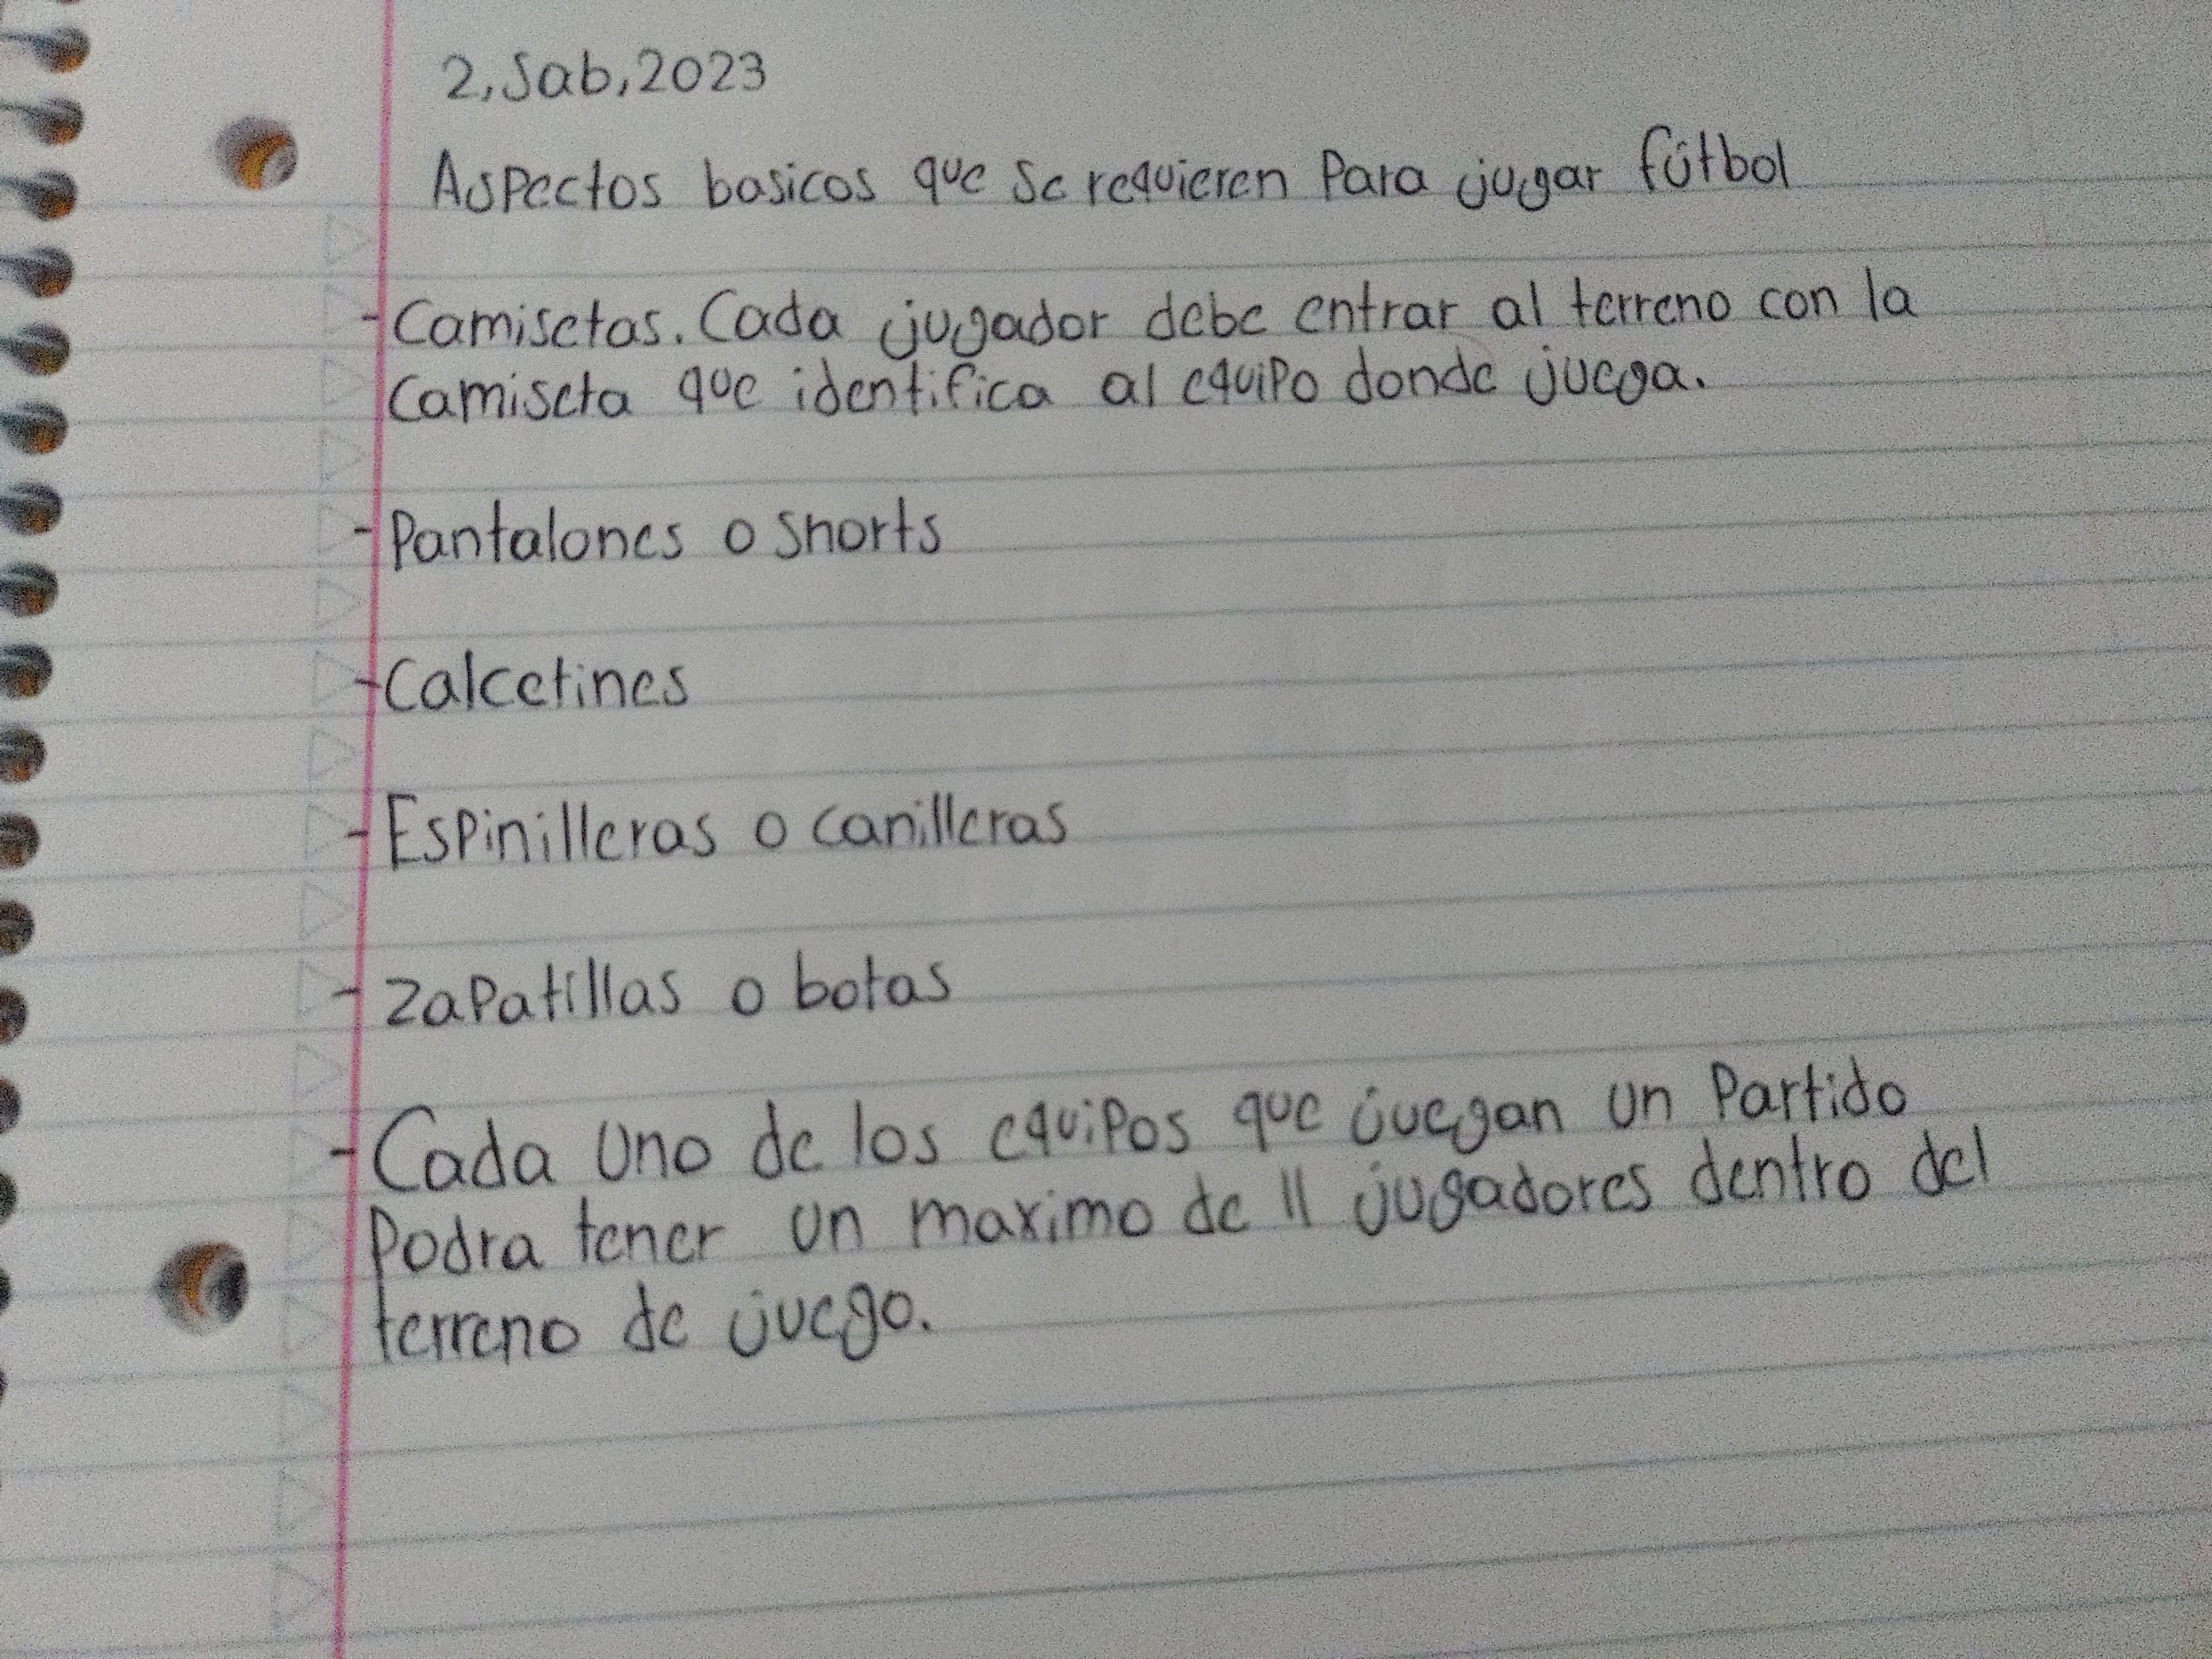 2,Sab,2023
Aspectos basicos que se requieren Para jugar fútbol
-Camisetas. Cada jugador debe entrar al terreno con la
camiseta que identifica al equipo donde juega.
-Pantalones o shorts
-Calcetines
-Espinilleras o canilleras
-Zapatillas o botas
-Cada uno de los equipos que juegan un Partido
Podra tener un maximo de 11 jugadores dentro del
terreno de juego.